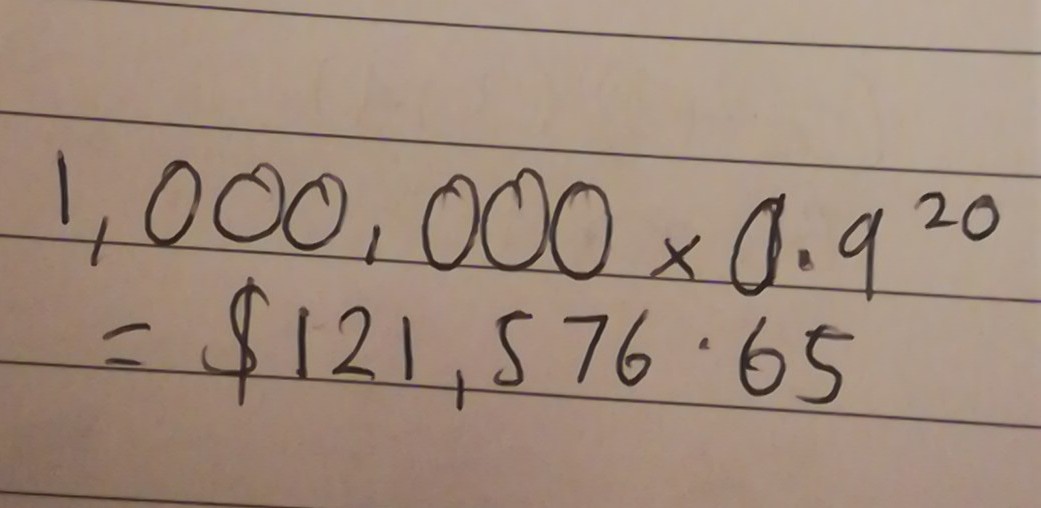 1,000,000 × 0.9²⁰
= $121,576.65